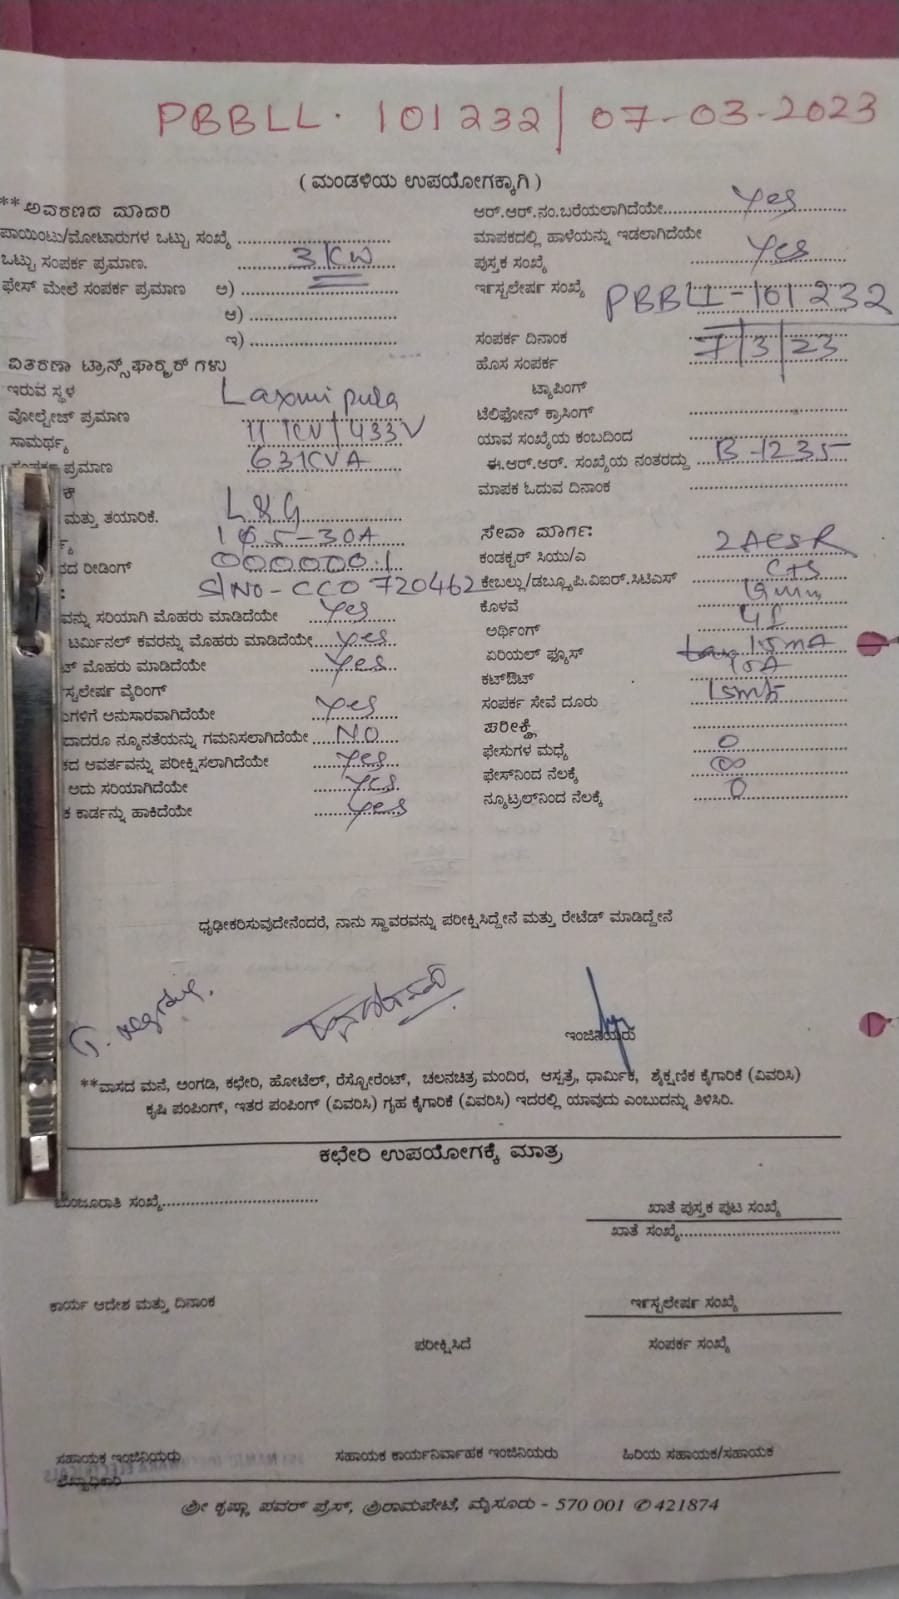 PBBLL. 101232 / 07-03-2023
( ಮಂಡಳಿಯ ಉಪಯೋಗಕ್ಕಾಗಿ )
**ಅವರಣದ ಮಾದರಿ
ಪಾಯಿಂಟು/ಮೋಟಾರುಗಳ ಒಟ್ಟು ಸಂಖ್ಯೆ
ಒಟ್ಟು ಸಂಪರ್ಕ ಪ್ರಮಾಣ. 3 KW
ಫೇಸ್ ಮೇಲೆ ಸಂಪರ್ಕ ಪ್ರಮಾಣ ಅ)
ಆ)
ಇ)
ವಿತರಣಾ ಟ್ರಾನ್ಸ್‌ಫಾರ್‍ಮರ್ ಗಳು
ಇರುವ ಸ್ಥಳ Laxmi pula
ವೋಲ್ಟೇಜ್ ಪ್ರಮಾಣ 11 KV/433V
ಸಾಮರ್ಥ್ಯ 63KVA
ಪ್ರಮಾಣ
ಮತ್ತು ತಯಾರಿಕೆ. L&G
5-30A
ನದ ರೀಡಿಂಗ್ 000000.1
S/No-CC0720462
ವನ್ನು ಸರಿಯಾಗಿ ಮೊಹರು ಮಾಡಿದೆಯೇ Yes
ಟರ್ಮಿನಲ್ ಕವರನ್ನು ಮೊಹರು ಮಾಡಿದೆಯೇ Yes
ಮೊಹರು ಮಾಡಿದೆಯೇ Yes
ಸ್ಟಲೇಷನ ವೈರಿಂಗ್
ಗಳಿಗೆ ಅನುಸಾರವಾಗಿದೆಯೇ Yes
ದಾದರೂ ನ್ಯೂನತೆಯನ್ನು ಗಮನಿಸಲಾಗಿದೆಯೇ NO
ಕದ ಆವರ್ತವನ್ನು ಪರೀಕ್ಷಿಸಲಾಗಿದೆಯೇ Yes
ಅದು ಸರಿಯಾಗಿದೆಯೇ Yes
ಕ ಕಾರ್ಡನ್ನು ಹಾಕಿದೆಯೇ Yes
ಆರ್.ಆರ್.ನಂ.ಬರೆಯಲಾಗಿದೆಯೇ Yes
ಮಾಪಕದಲ್ಲಿ ಹಾಳೆಯನ್ನು ಇಡಲಾಗಿದೆಯೇ
ಪುಸ್ತಕ ಸಂಖ್ಯೆ Yes
ಇನ್ಸ್ಟಲೇಷನ ಸಂಖ್ಯೆ PBBLL-101232
ಸಂಪರ್ಕ ದಿನಾಂಕ 7/3/23
ಹೊಸ ಸಂಪರ್ಕ
ಟ್ಯಾಪಿಂಗ್
ಟೆಲಿಫೋನ್ ಕ್ರಾಸಿಂಗ್
ಯಾವ ಸಂಖ್ಯೆಯ ಕಂಬದಿಂದ
ಈ.ಆರ್.ಆರ್. ಸಂಖ್ಯೆಯ ನಂತರದ್ದು B-1235
ಮಾಪಕ ಓದುವ ದಿನಾಂಕ
ಸೇವಾ ಮಾರ್ಗ:
ಕಂಡಕ್ಟರ್ ಸಿಯು/ಎ 2ACSR
ಕೇಬಲ್ಲು/ಡಬ್ಲ್ಯೂ.ಪಿ.ವಿಐಆರ್.ಸಿಟಿಎಸ್ CTS
ಕೊಳವೆ
ಅರ್ಥಿಂಗ್
ಏರಿಯಲ್ ಫ್ಯೂಸ್
ಕಟ್ಔಟ್ 10A
ಸಂಪರ್ಕ ಸೇವೆ ದೂರು
ಪರೀಕ್ಷೆ
ಫೇಸುಗಳ ಮಧ್ಯೆ 0
ಫೇಸ್‌ನಿಂದ ನೆಲಕ್ಕೆ ∞
ನ್ಯೂಟ್ರಲ್‌ನಿಂದ ನೆಲಕ್ಕೆ 0
ಧೃಢೀಕರಿಸುವುದೇನೆಂದರೆ, ನಾನು ಸ್ಥಾವರವನ್ನು ಪರೀಕ್ಷಿಸಿದ್ದೇನೆ ಮತ್ತು ರೇಟೆಡ್ ಮಾಡಿದ್ದೇನೆ
ಇಂಜಿನಿಯರು
**ವಾಸದ ಮನೆ, ಅಂಗಡಿ, ಕಛೇರಿ, ಹೋಟೆಲ್, ರೆಸ್ಟೋರೆಂಟ್, ಚಲನಚಿತ್ರ ಮಂದಿರ, ಆಸ್ಪತ್ರೆ, ಧಾರ್ಮಿಕ, ಶೈಕ್ಷಣಿಕ ಕೈಗಾರಿಕೆ (ವಿವರಿಸಿ)
ಕೃಷಿ ಪಂಪಿಂಗ್, ಇತರ ಪಂಪಿಂಗ್ (ವಿವರಿಸಿ) ಗೃಹ ಕೈಗಾರಿಕೆ (ವಿವರಿಸಿ) ಇದರಲ್ಲಿ ಯಾವುದು ಎಂಬುದನ್ನು ತಿಳಿಸಿರಿ.
ಕಛೇರಿ ಉಪಯೋಗಕ್ಕೆ ಮಾತ್ರ
ಮಂಜೂರಾತಿ ಸಂಖ್ಯೆ
ಖಾತೆ ಪುಸ್ತಕ ಪುಟ ಸಂಖ್ಯೆ
ಖಾತೆ ಸಂಖ್ಯೆ
ಕಾರ್ಯ ಆದೇಶ ಮತ್ತು ದಿನಾಂಕ
ಇನ್ಸ್ಟಲೇಷನ ಸಂಖ್ಯೆ
ಪರೀಕ್ಷಿಸಿದೆ
ಸಂಪರ್ಕ ಸಂಖ್ಯೆ
ಸಹಾಯಕ ಇಂಜಿನಿಯರು
ಸಹಾಯಕ ಕಾರ್ಯನಿರ್ವಾಹಕ ಇಂಜಿನಿಯರು
ಹಿರಿಯ ಸಹಾಯಕ/ಸಹಾಯಕ
ಶ್ರೀ ಕೃಷ್ಣಾ ಪವರ್ ಪ್ರೆಸ್, ಶ್ರೀರಾಮಪೇಟೆ, ಮೈಸೂರು - 570 001 ✆ 421874